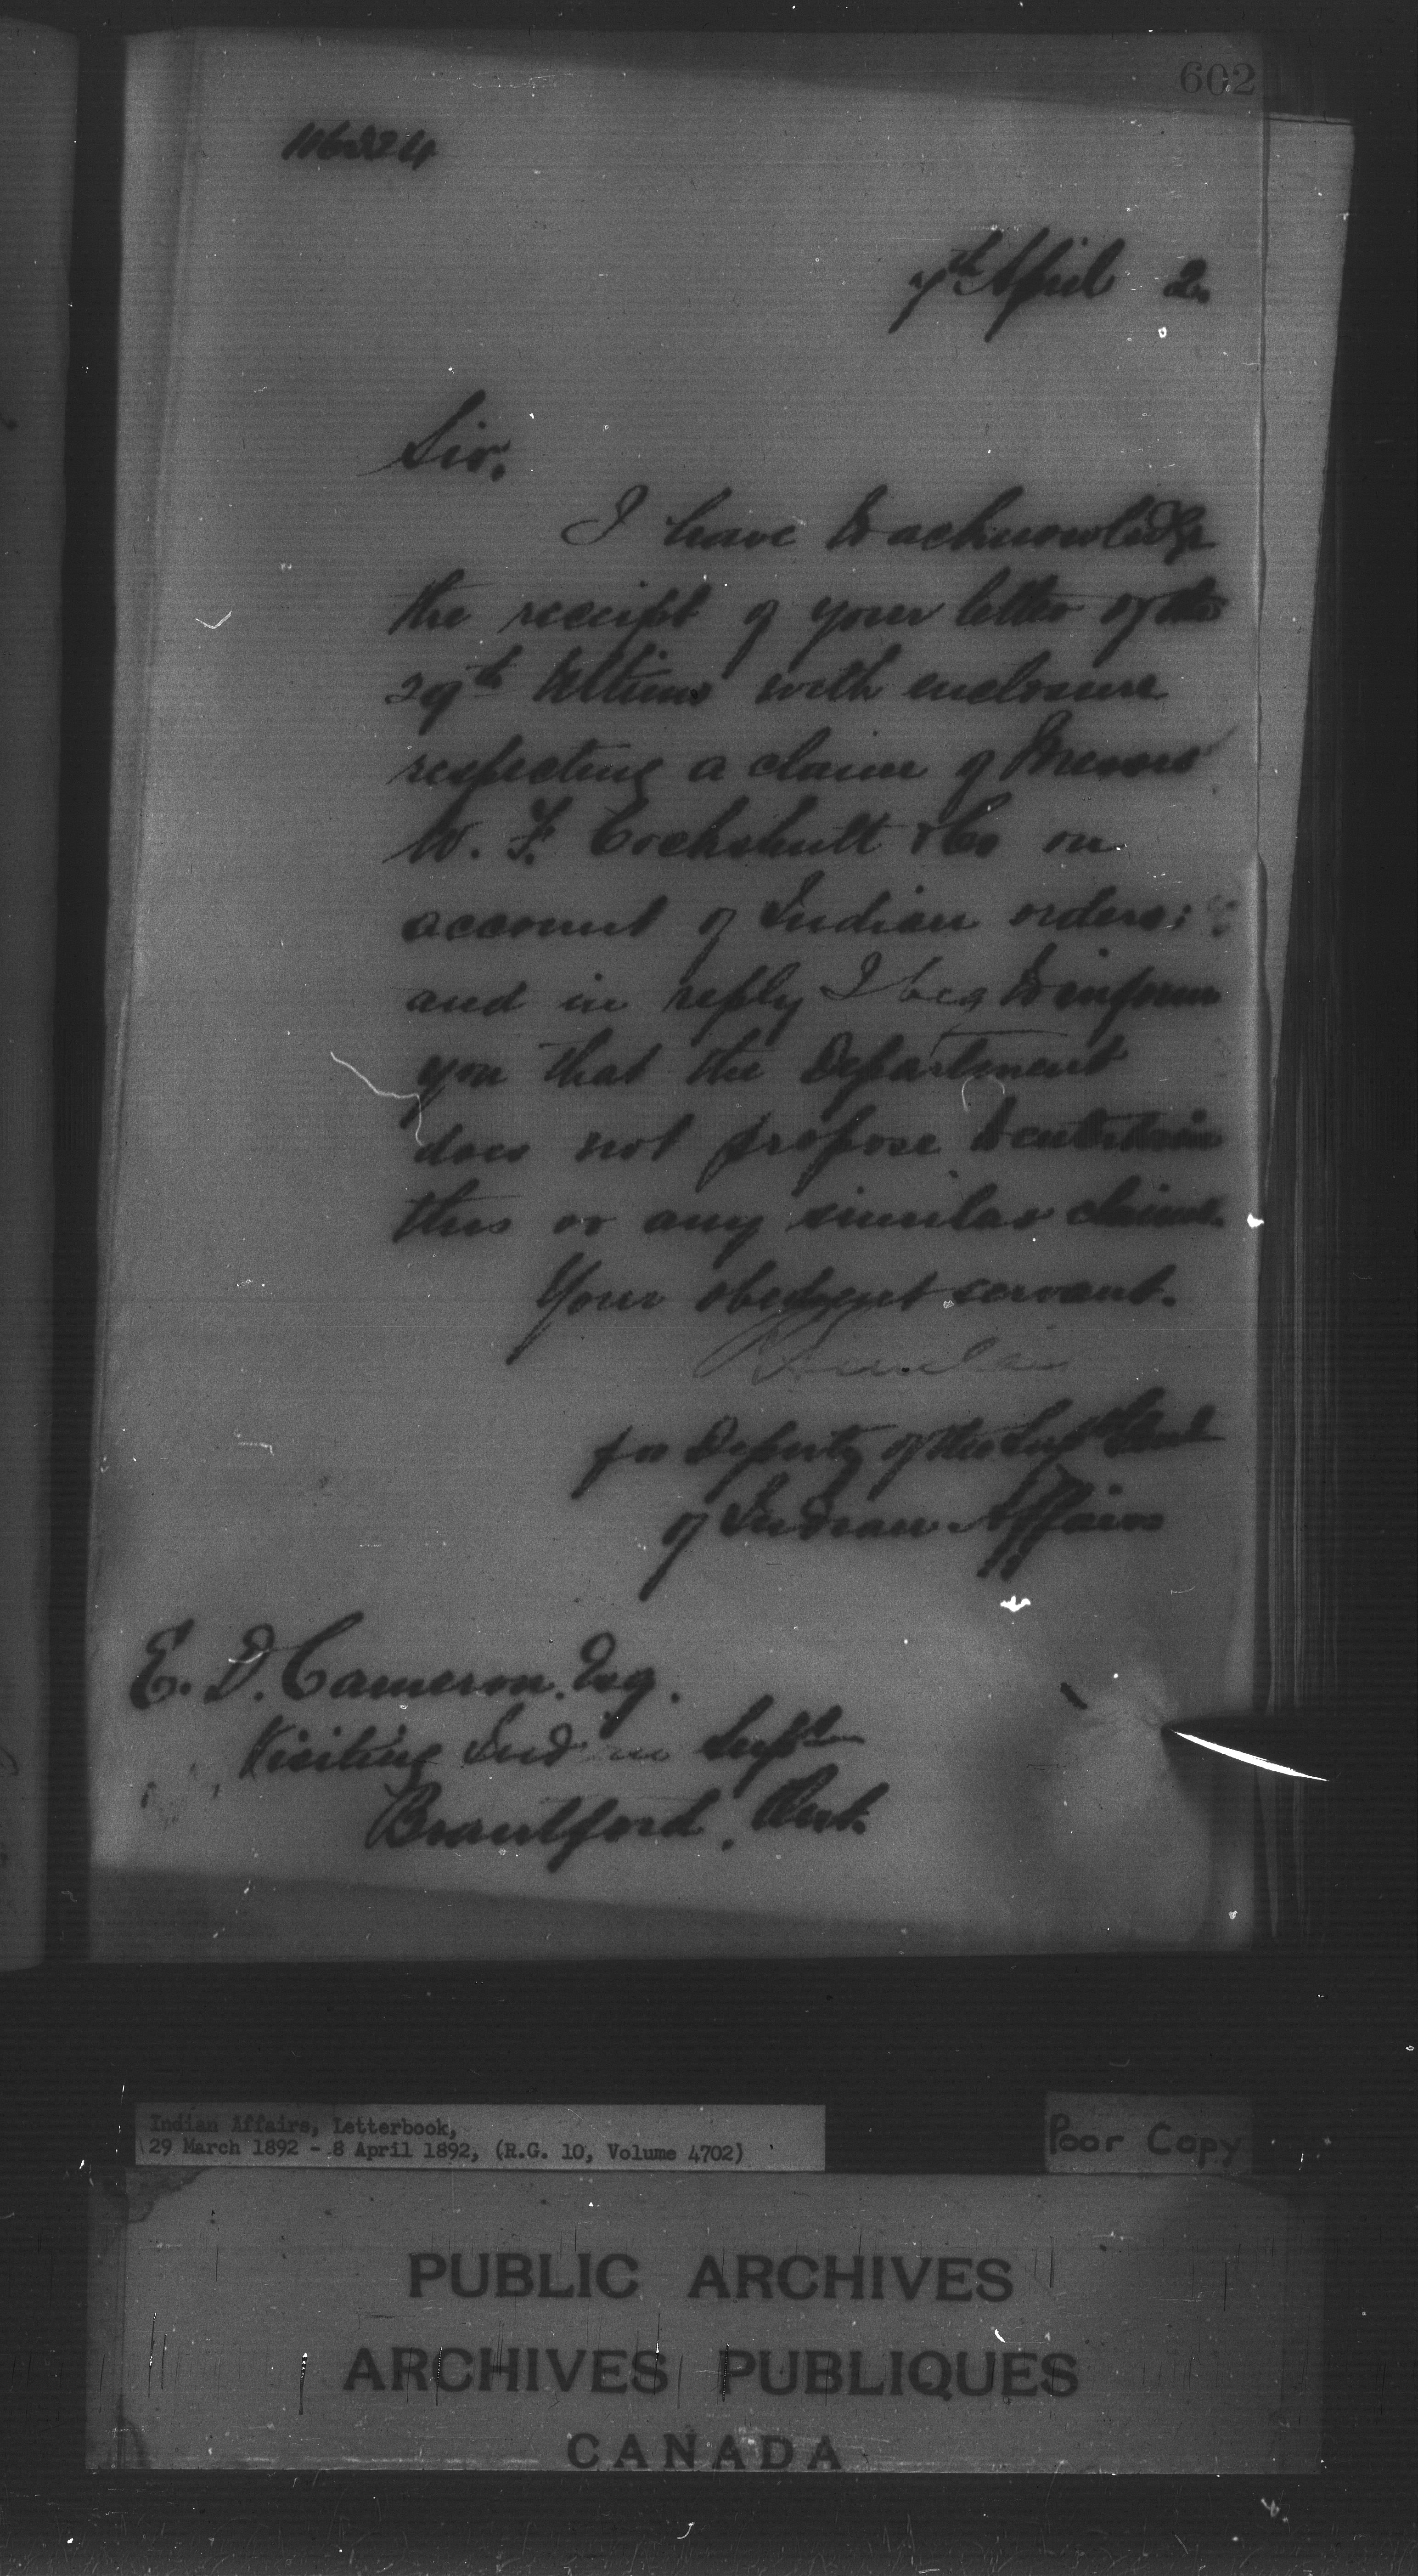 602
116324
7th April 2.
Sir,
I have to acknowledge
the receipt of your letter of the
29th Ultimo with enclosure
respecting a claim of Messrs
W. F. Cockshutt & Co on
account of Indian orders;
and in reply I beg to inform
you that the Department
does not propose to entertain
this or any similar claims.
Your obedient servant.
for Deputy of the Supt Genl
of Indian Affairs
E. D. Cameron, Esq.
Visiting Indian Supt
Brantford, Ont.
Indian Affairs, Letterbook,
29 March 1892 - 8 April 1892, (R.G. 10, Volume 4702)
Poor Copy
PUBLIC ARCHIVES
ARCHIVES PUBLIQUES
CANADA